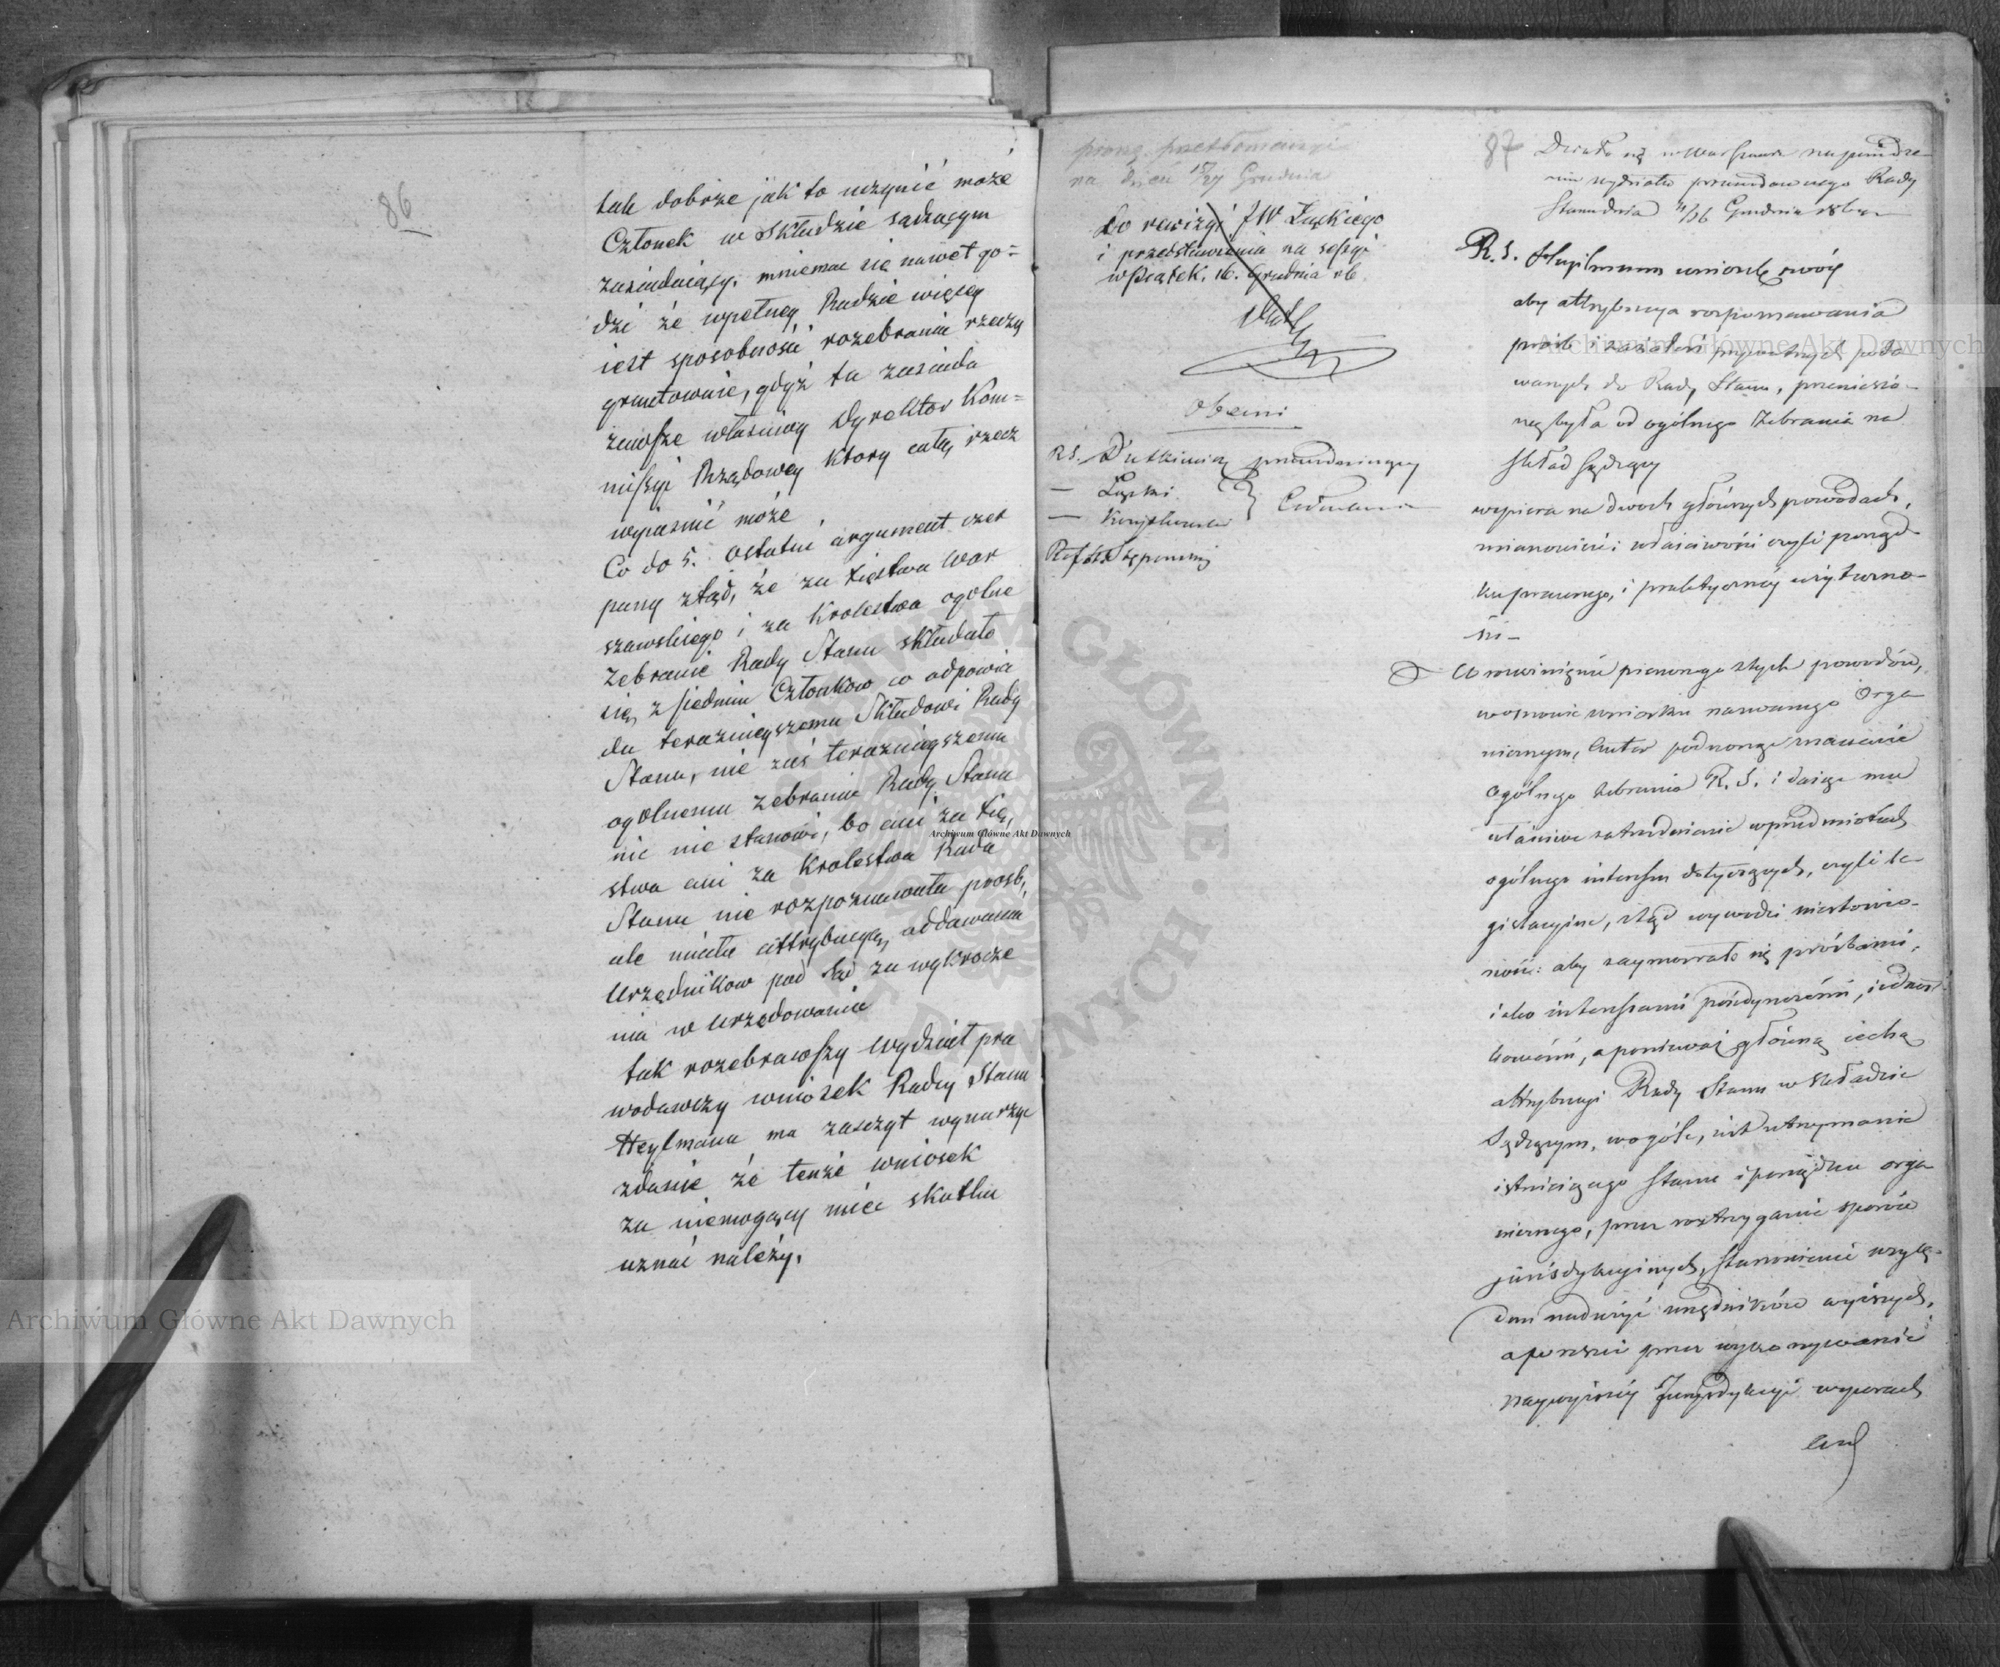 86
tak dobrze jak to uczynić może
Członek w Składzie sądzącym
zasiadaiący. mniemać się nawet go=
dzi że wpełney Radzie więcey
iest sposobności rozebrania rzeczy
gruntownie, gdyż tu zasiada
zawsze właściwy Dyrektor Kom=
missyi Rządowey ktory całą rzecz
wyiaśnić może
Co do 5. ostatni argument czer
pany ztąd, że za Xięstwa War
szawskiego i za Krolestwa ogolne
Zebranie Rady Stanu składało
się z siedmiu Członkow co odpowia
da teraznieyszemu Składowi Rady
Stanu, nie zaś teraznieyszemu
ogolnemu zebraniu Rady Stanu
nic nie stanowi, bo ani za Xię
stwa ani za Krolestwa Rada
Stanu nie rozpoznawała prosb,
ale miała attrybucyą oddawania
Urzędnikow pod Sąd za wykrocze
nia w Urzędowaniu
tak rozebrawszy Wydział pra
wodawczy wniosek Radcy Stanu
Heylmana ma zaszczyt wynurzyć
zdanie że tenże wniosek
za niemogący mieć skutku
uznać należy.
na dzień 15/27 Grudnia
Do rewizyi JW Łuskiego
i przedstawienia na sessyi
w Piątek. 16. Grudnia r b
Obecni
RS. Dutkiewicz prezyduiący
— Łuski
—
Członkowie
87
Działo się w Warszawie na posiedze
niu wydziału prawodawczego Rady
Stanu dnia 4/16 Grudnia
R. S. Heylmann wniosek swóy
aby attrybucya rozpoznawania
próśb i zażaleń prywatnych poda
wanych do Rady Stanu, przeniesio-
ną była od ogólnego Zebrania na
Skład Sądzący
wspiera na dwoch głównych powodach,
mianowicie: właściwości czyli porząd
ku prawnego, i praktyczney użyteczno-
ści —
W rozwinięciu pierwszego z tych powodów,
wosnowie wniosku nazwanego Orga
nicznym, Autor podnosząc znaczenie
ogólnego Zebrania R. S. i daiąc mu
właściwe zatrudnienie w przedmiotach
ogólnego interessu dotyczących, czyli le-
gislacyine, ztąd wywodzi niestosow-
ność: aby zaymowało się prośbami,
iako interessami poiedynczemi, iednost-
kowemi, a ponieważ główną cechą
attrybucyi Rady Stanu w Składzie
Sądzącym, w ogóle, iest utrzymanie
istnieiącego Stanu i porządku orga
nicznego, przez roztrzyganie sporów
jurisdykcyinych, stanowienie wzglę-
dem nadużyć urzędników wyższych,
a po części przez wykonywanie
naywyższey Jurysdykcyi w sprawach